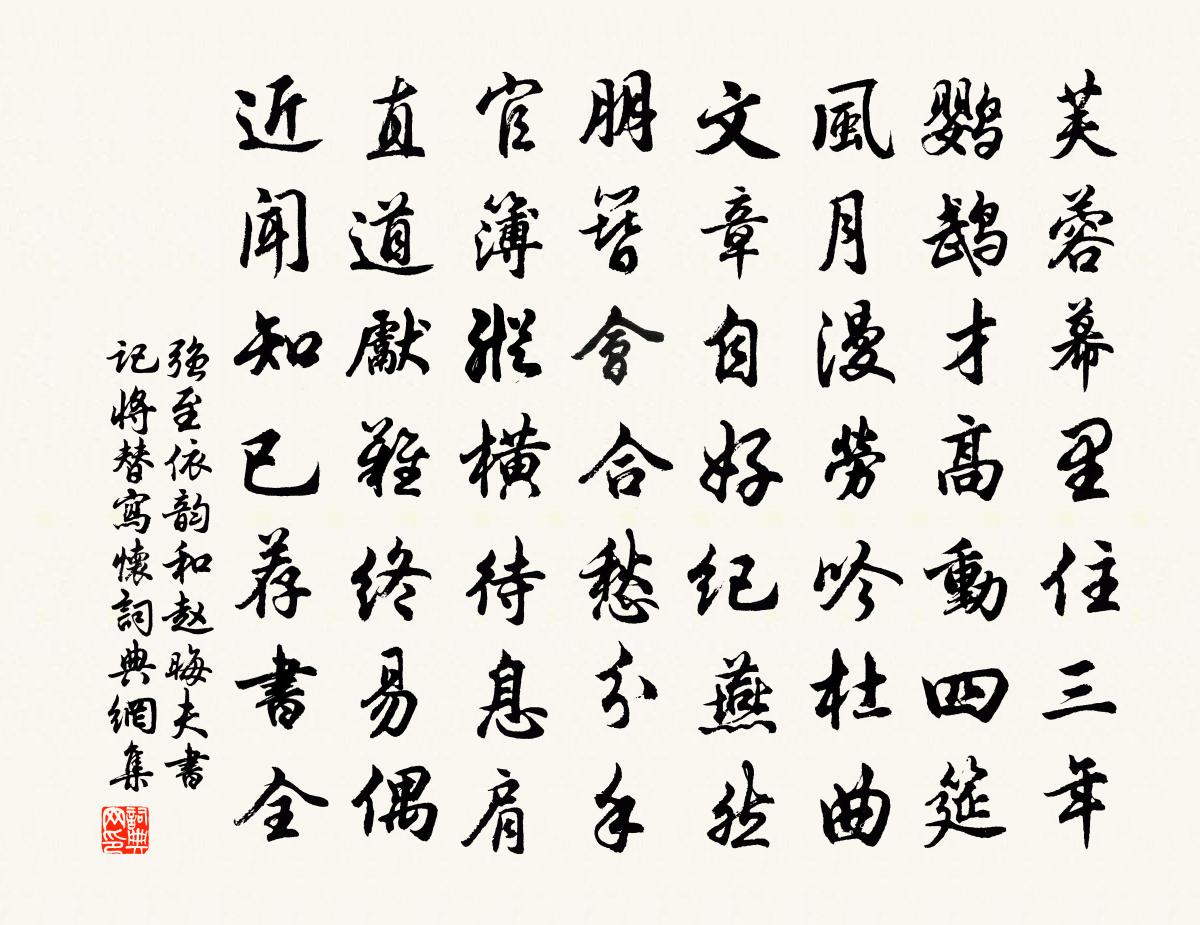 芙蓉幕里住三年
鸚鵡才高動四筵
風月漫勞吟杜曲
文章自好紀燕然
朋簪會合愁分手
官簿縱橫待息肩
直道獻難終易偶
近聞知己荐書全
强至依韵和赵晦夫書
記将替寫懷詞典網集
詞典网印